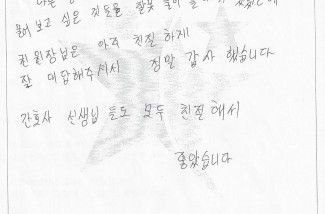 물어 보고 싶은 것들을 잘못
권 원장님은 아주 친절하게
잘 대답해주셔서 정말 감사 했습니다
간호사 선생님 들도 모두 친절해서
좋았습니다